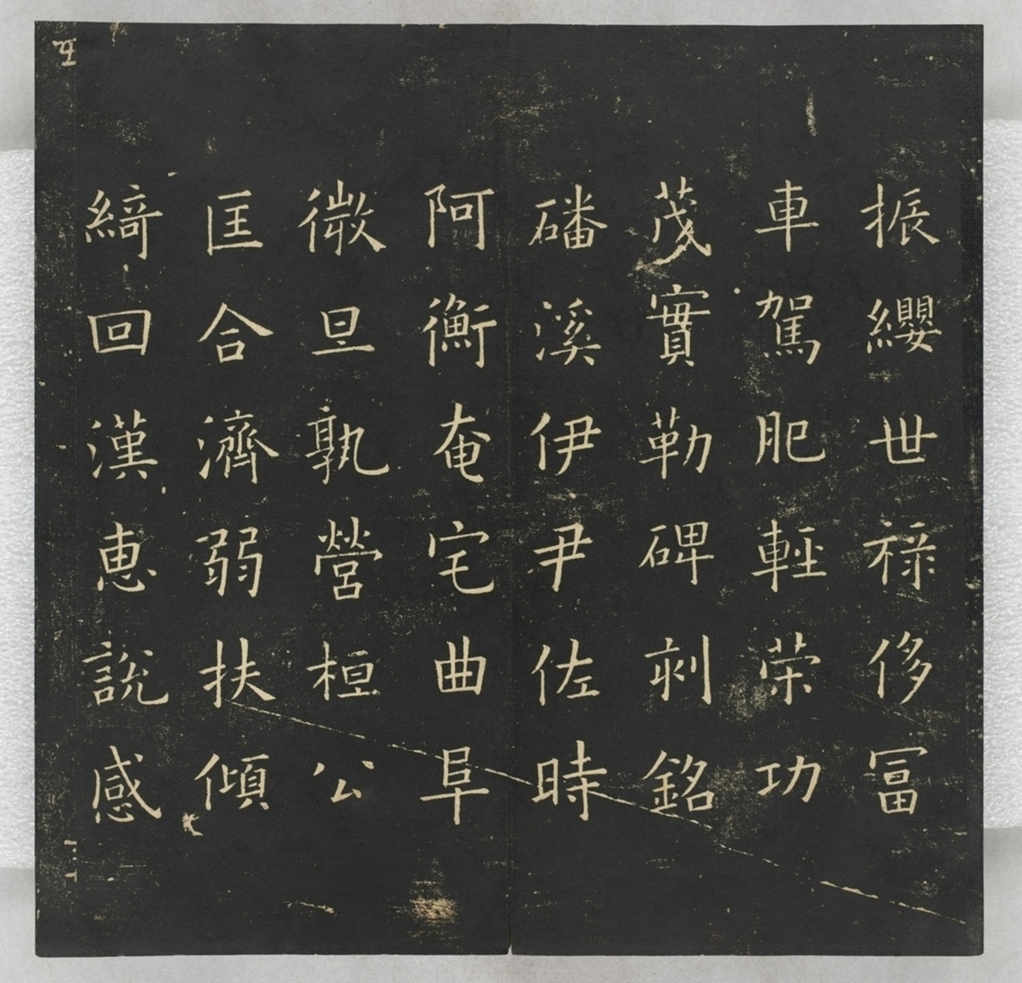 振纓世祿侈冨
車駕肥輕榮功
茂實勒碑刺銘
磻溪伊尹佐時
阿衡奄宅曲阜
微旦孰營桓公
匡合濟弱扶傾
綺回漢恵說感
五